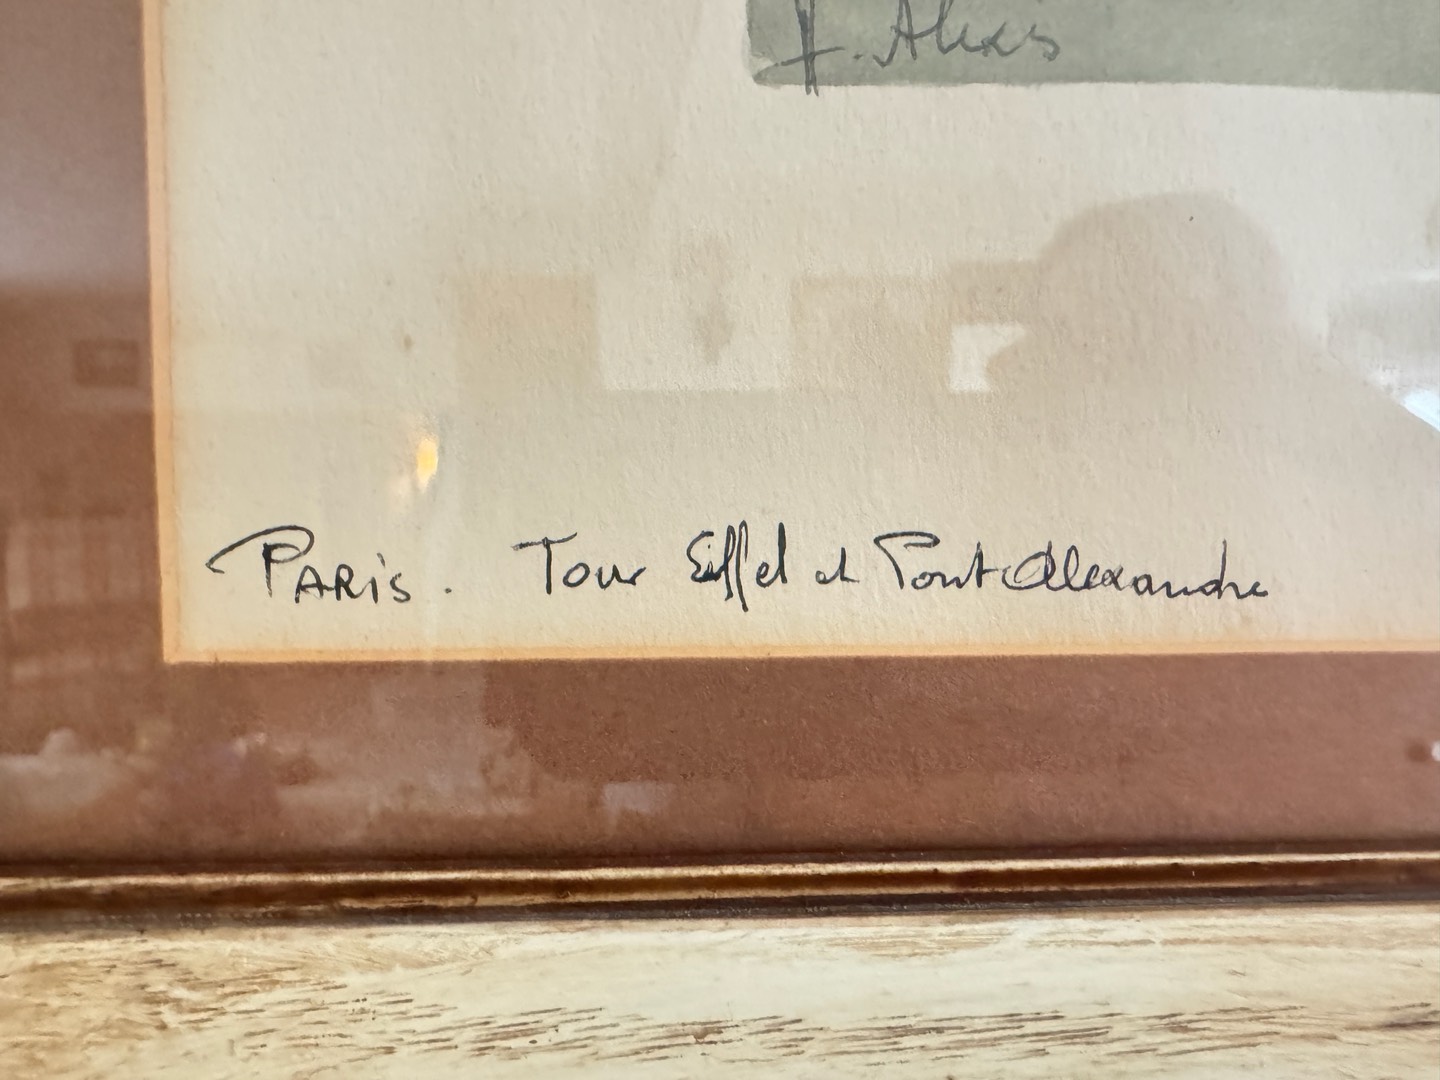 . Alexis
PARis. Tour Eiffel et Pont Alexandre